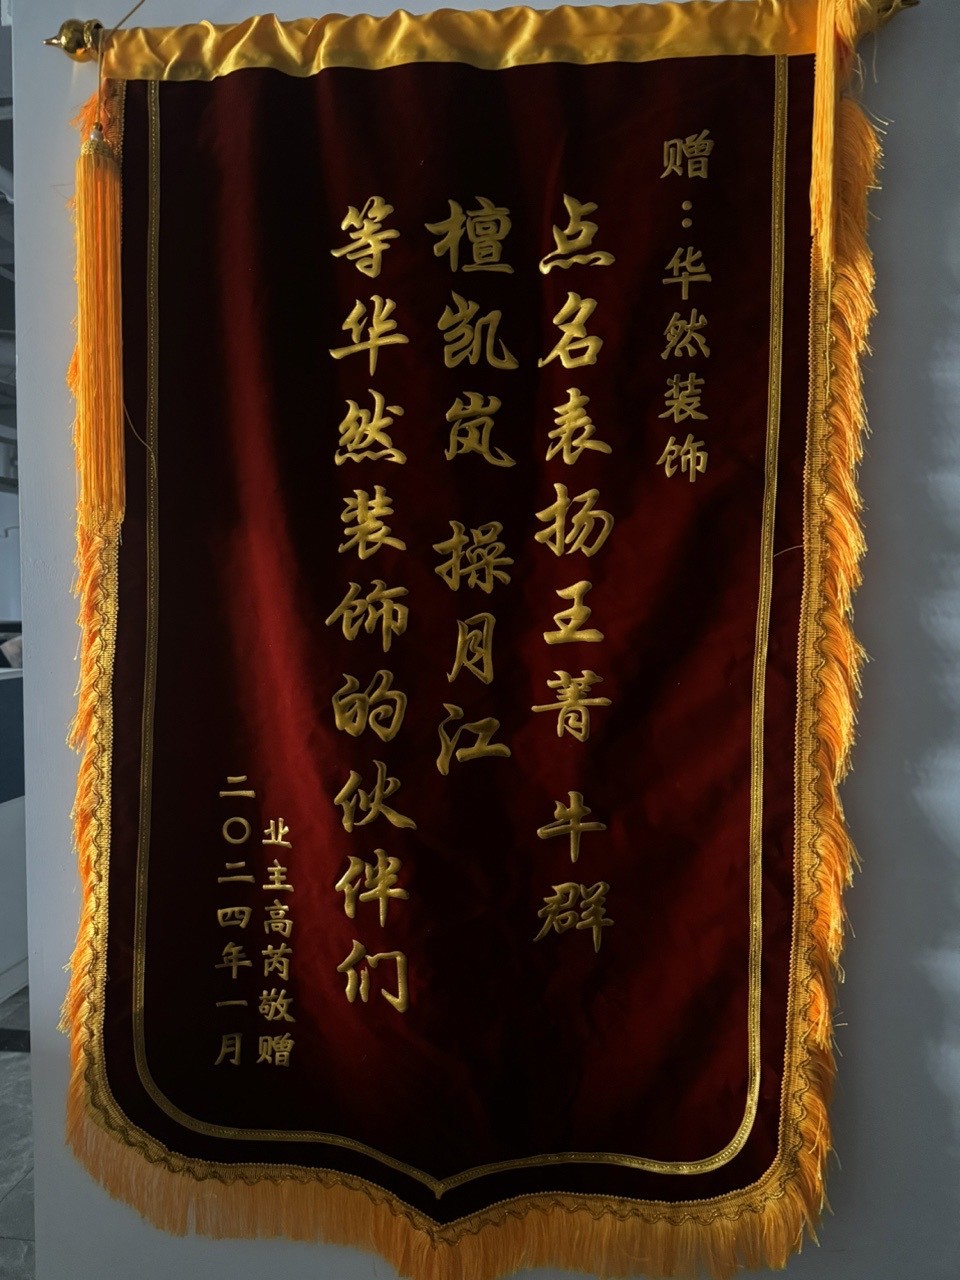 赠：华然装饰
点名表扬王菁 牛群
檀凯岚 操月江
等华然装饰的伙伴们
业主高芮敬赠
二〇二四年一月